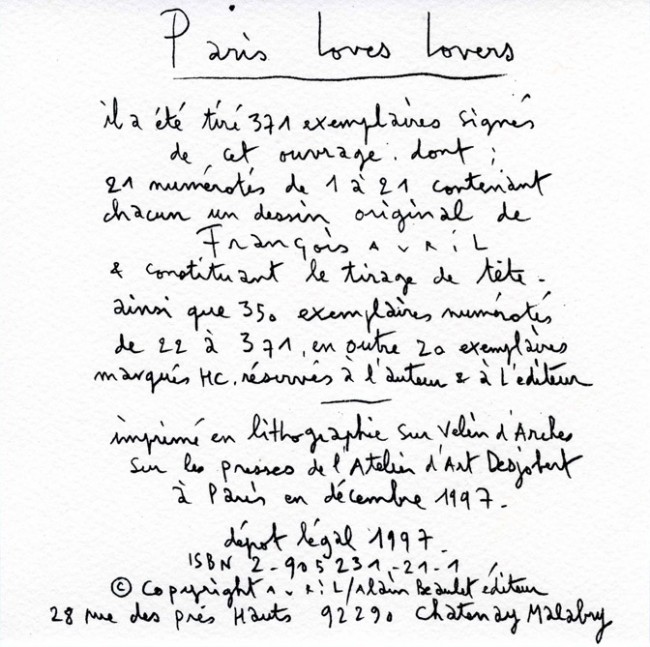 Paris Loves Lovers
il a été tiré 371 exemplaires signés
de cet ouvrage. dont ;
21 numérotés de 1 à 21 contenant
chacun un dessin original de
François AVRiL
& constituant le tirage de tête -
ainsi que 350 exemplaires numérotés
de 22 à 371, en outre 20 exemplaires
marqués HC. réservés à l'auteur & à l'editeur
imprimé en lithographie sur Velin d'Arches
sur les presses de l'Atelier d'Art Desjobert
à Paris en décembre 1997-
dépot légal 1997.
ISBN 2-905231-21-1
© Copyright AVRiL/Alain Beaulet éditeur
28 rue des prés Hauts 92290 Chatenay Malabry